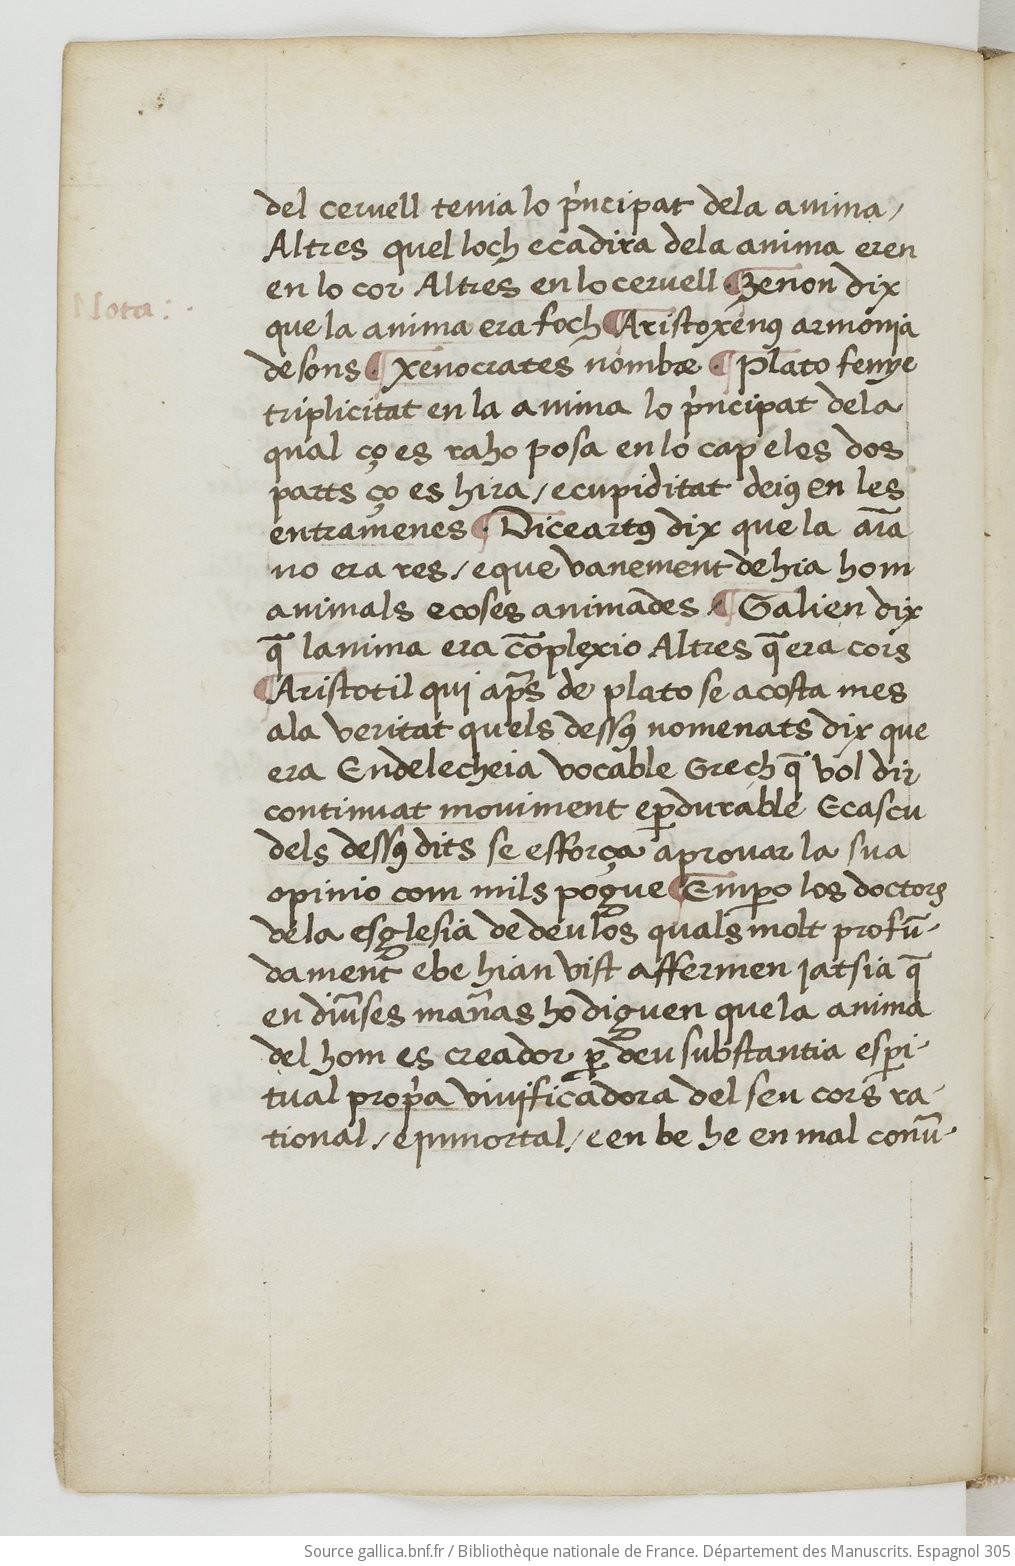 del ceruell tenia lo p̉ncipat dela anima /
Altres quel loch e cadira dela anima eren
en lo cor Altres en lo ceruell · ¶ Zenon dix
Nota :
que la anima era foch ¶ Aristoxenꝰ armonja
de sons ¶ · Xenocrates nombre · ¶ Plato fenye
triplicitat en la anima lo p̉ncipat dela
qual ço es raho posa en lo cap e les dos
parts ço es hira / e cupiditat deiꝰ en les
entramenes ¶ · Diceartꝰ dix que la aīa
no era res / e que vanement dehia hom
animals e coses animades / ¶ Galien dix
q̄ lanima era cōplexio Altres q̄ era cors
¶ Aristotil quj ap̄s de plato se acosta mes
ala veritat quels dessꝰ nomenats dix que
era Endelecheia vocable Grech q̄ vol dir
continuat moviment e ꝑdurable E cascu
dels dessꝰ dits se esforça a prouar la sua
opinio com mils pogue ¶ Emꝑo los doctors
dela esglesia de deu los quals molt profū-
dament e be hian vist affermen jatsia q̄
en diūses man̄as ho diguen que la anima
del hom es creador ꝑ deu substantia espi-
tual prop̉a viujficadora del seu cors ra-
tional / e jnmortal / e en be he en mal conū-
Source gallica.bnf.fr / Bibliothèque nationale de France. Département des Manuscrits. Espagnol 305